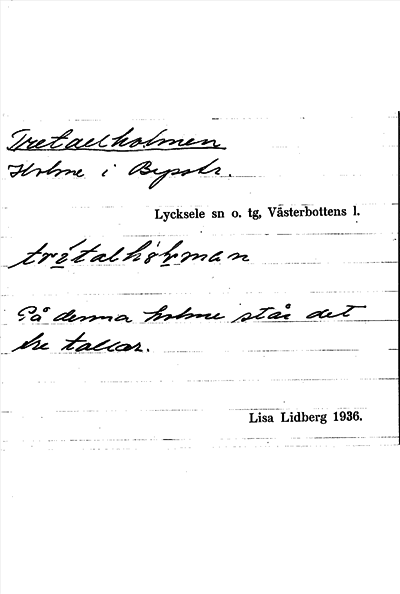 Tretallholmen
Holme i Bypstr.
Lycksele sn o. tg, Västerbottens l.
trḯtalhòḷman
På denna holme står det
tre tallar.
Lisa Lidberg 1936.